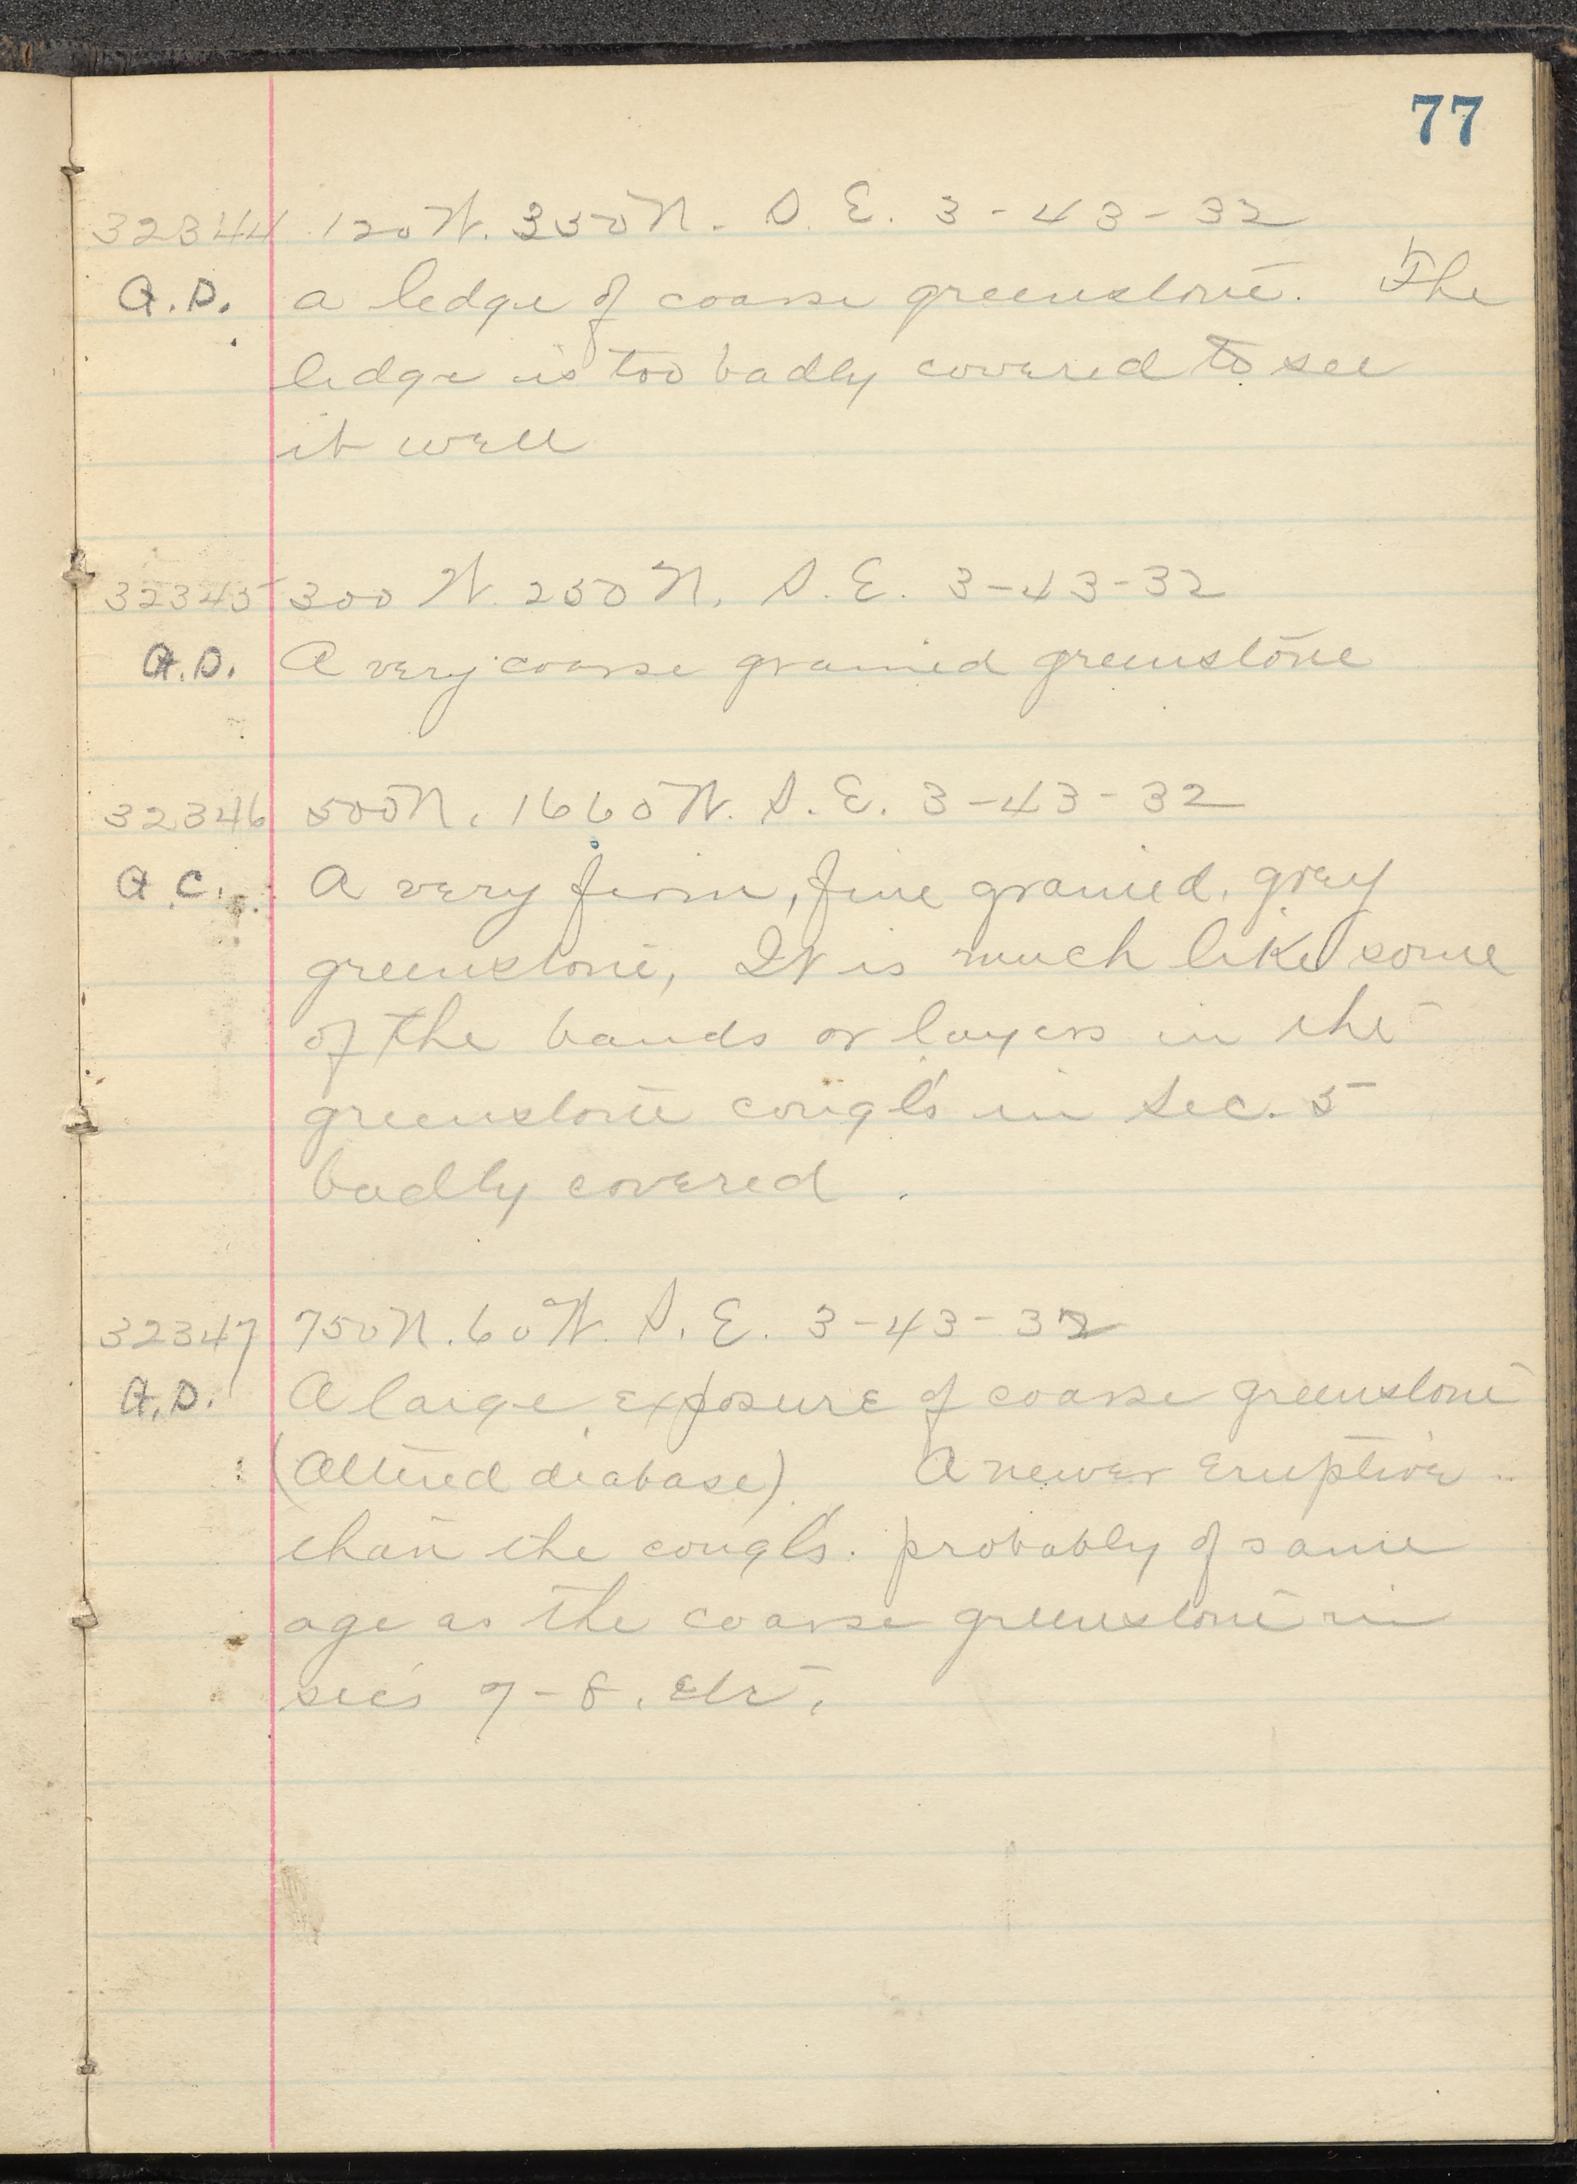 77
32344 120 W. 350 N. S. E. 3-43-32
A.D. a ledge of coarse greenstone. The
ledge is too badly covered to see
it well
32345 300 W. 250 N. S. E. 3-43-32
A.D. A very coarse grained greenstone
32346 500 N. 1660 W. S. E. 3-43-32
A.C. A very firm, fine grained, grey
greenstone, It is much like some
of the bands or layers in the
greenstone congl's in Sec. 5
badly covered.
32347 750 N. 60 W. S. E. 3-43-32
A.D. A large exposure of coarse greenstone
(Altered diabase) A newer eruptive
than the congl's. probably of same
age as the coarse greenstone in
sec's 7-8. etc.